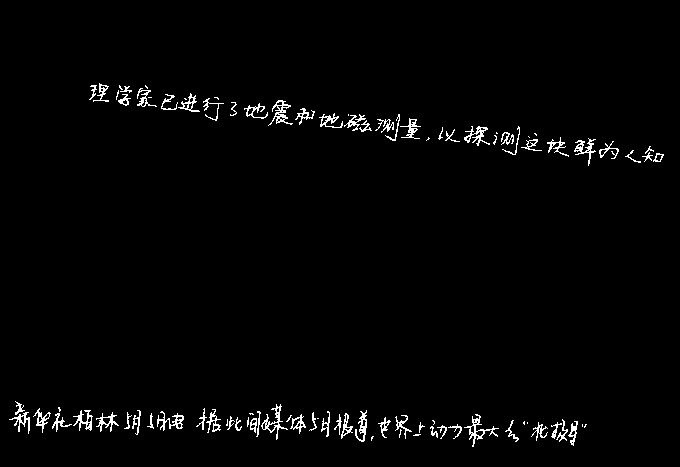 理学家已进行了地震和地磁测量，以探测这块鲜为人知
新华社柏林5月5日电 据此间媒体5日报道，世界上动力最大的“北极星”